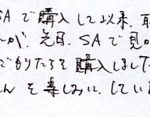 SAで購入して以来、
が、先日、SAで見か
だもりたろを購入しまし
んを楽しみにしてい